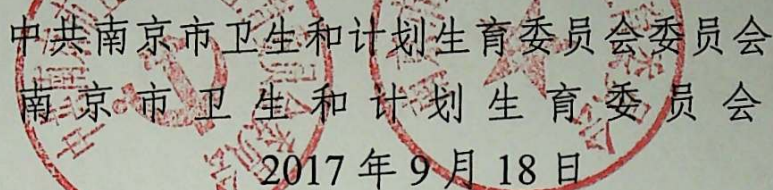 中共南京市卫生和计划生育委员会委员会
南京市卫生和计划生育委员会
2017年9月18日